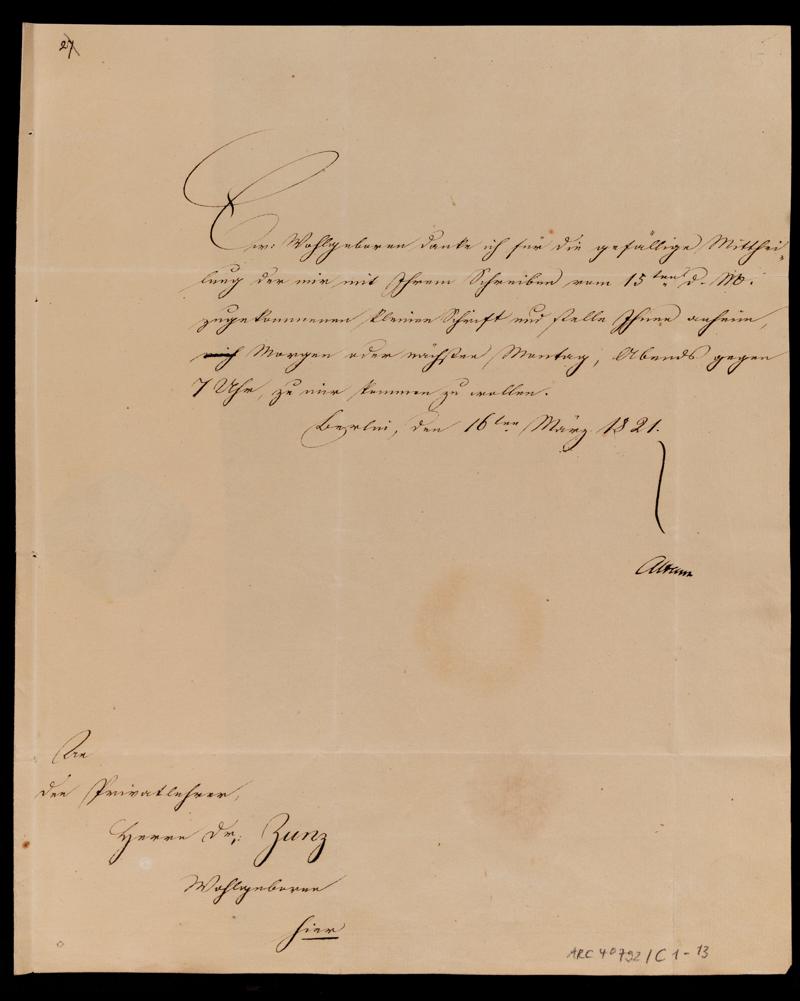 27
Ew: Wohlgeboren danke ich für die gefällige Mitthei-
lung der mir mit Ihrem Schreiben vom 15ten d. M.
zugekommenen kleinen Schrift und stelle Ihnen anheim,
mich Morgen oder nächsten Montag, Abends gegen
7 Uhr, zu mir kommen zu wollen.
Berlin, den 16ten März 1821.
An
den Privatlehrer,
Herrn Dr: Zunz
Wohlgeboren
hier
ARC 4° 792/C1-13